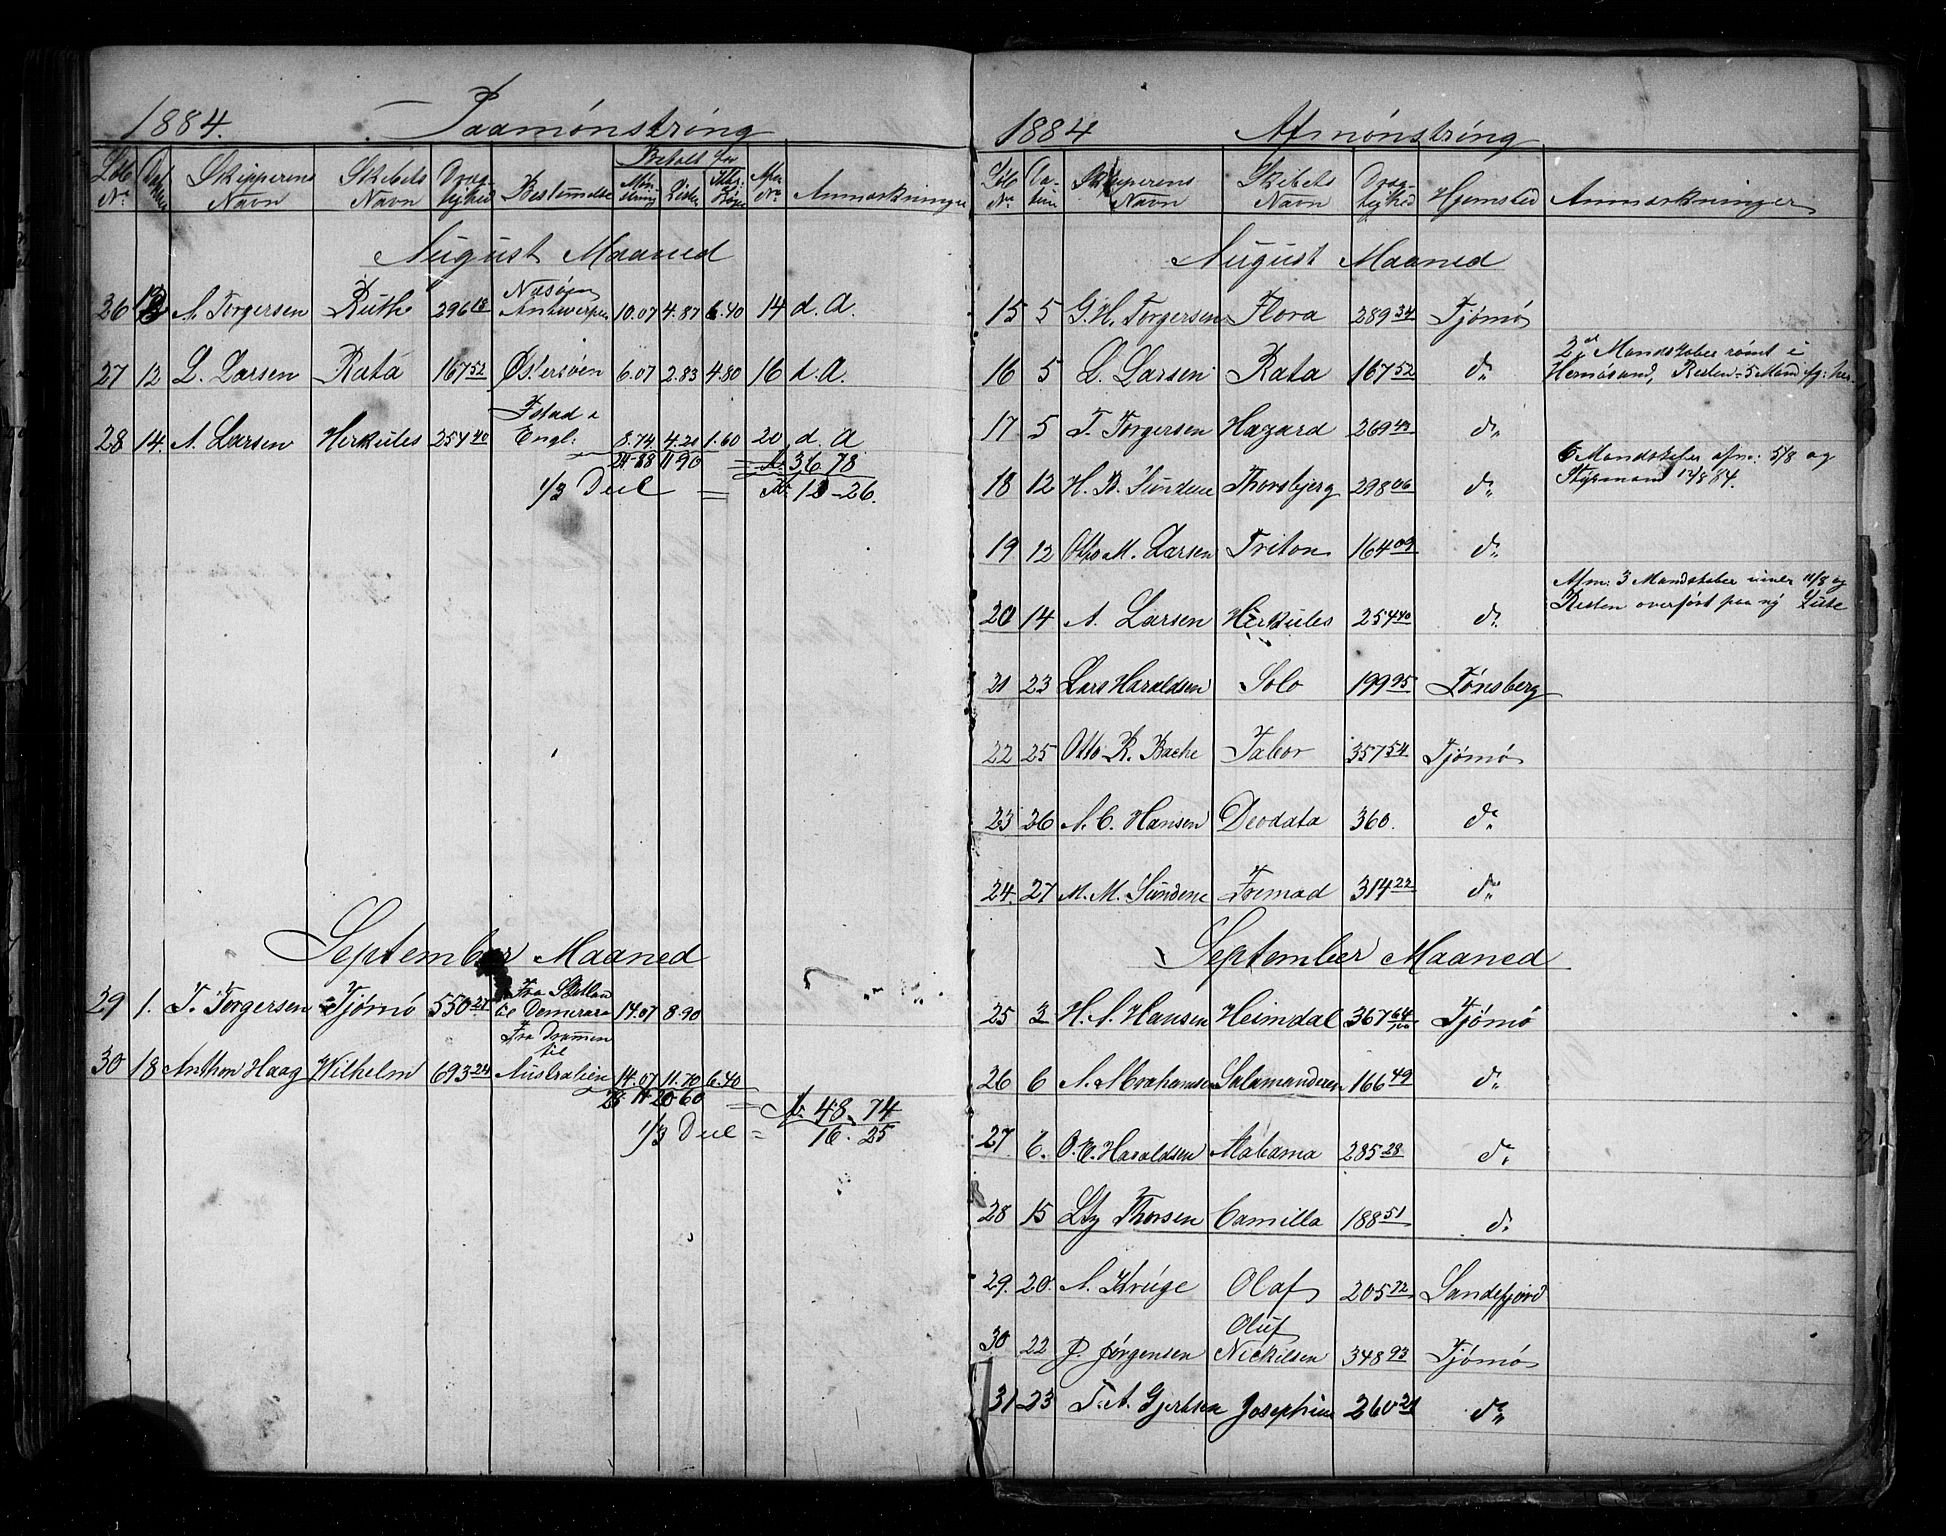 1884. Paamønstring
Skipperens Navn Skibets Navn Dræg-tighed Bestemmelse Betalt for Møn-string Lister Anmærkninger
August Maaned
26 A. Torgersen Ruth 296 18 Antwerpen 10.07 4.87 6.40 14 d. A.
27 12 L. Larsen Rata 167 52 Østersøen 6.07 2.83 4.80 16 d. A.
28 14. A. Larsen Herkules 254 40 Engl. 8.74 4.20 1.60 20 d. A
11 90 = Kr. 36 78
1/3 Deel = Kr. 12-26.
September Maaned
29 1. T. Torgersen Tjømø 550 27 Fra til Demerara 14.07 8.90
30 18 Anthon Haag Wilhelm 693 24 Fra Drammen til Australien 14.07 11.70 6.40
28 14 20 60 = Kr. 48. 74
1/3 Deel = 16. 25
1884 Afmønstring
Skipperens Navn Skibets Navn Dræg-tighed Hjemsted Anmærkninger
August Maaned
15 5 G. H. Torgersen Flora 289 34 Tjømø
16 5 L. Larsen Rata 167 52 do 2de Mandskaber rømt i Hernøsand, Resten = 5 Mand
17 5 T. Torgersen Hazard 269 43 do
18 12 H. B. Sundene Thorsbjerg 298 06 do 6 Mandskaber afm: 5/8 og Styrmand 12/8 84.
19 12 Otto M. Larsen Triton 164 09 do
20 14 A. Larsen Herkules 254 40 do Afm: 3 Mandskaber 11/8 og Resten overført paa ny Liste
21 23 Lars Haraldsen Solo 199 95 Tønsberg
22 25 Otto R. Bache Tabor 357 54 Tjømø
23 26 A. C. Hansen Deodata 360. do
24. 27 M. M. Sundene Fremad 314 22 do
September Maaned
25 3 H. A. Hansen Heimdal 367 64/100 Tjømø
26 6 A. Abrahamsen Salamanderen 166 49 do
27 6. O. E. Haraldsen Alabama 285 28 do
28 15 Thorsen Camilla 188 51 do
29. 20. A. Krüge Olaf 205 72 Sandefjord
30 22 J. Jørgensen Oluf Nickelsen 348 93 Tjømø
31 23 T. A. Gjertsen Josephine 260 21 do